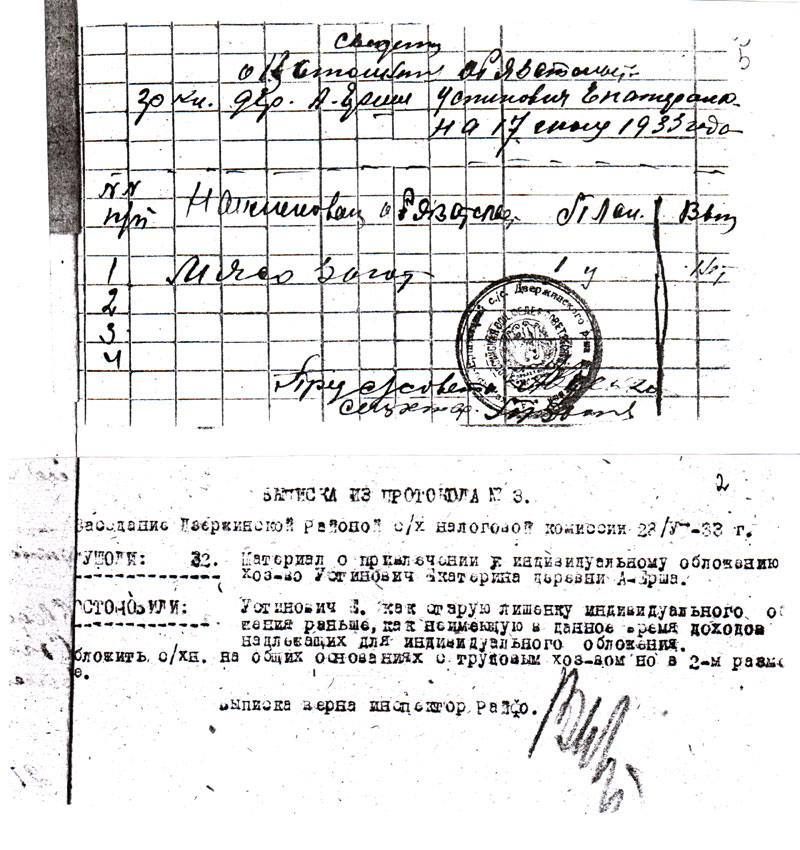 5
Сведени
о
гр-ки. дер. А-Ерши Устинович Екатерина
на 17 июля 1933 года
NN
п/п
План. Вып
1 Мясо загот 1 ц Нет
2
3
4
с/с. Дзержинского р-на
Пред с/совета
секретар
2
ВЫПИСКА ИЗ ПРОТОКОЛА № 3.
Заседание Дзержинской Районой с/х налоговой комиссии 28/У -33 г.
УШОЛИ: 32. Материал о привлечении к индивидуальному обложению
Хоз-во Устинович Екатерина деревни А-Ерша.
ОСТОНОВИЛИ: Устинович Е. как старую лишенку индивидуального о
жения раньше, как неимеющую в данное время доходов
надлежащих для индивидуального обложения.
бложить с/хн. на общих основаниях с трудовым хоз-вом но в 2-м разме
е.
Выписка верна инспектор Райфо.